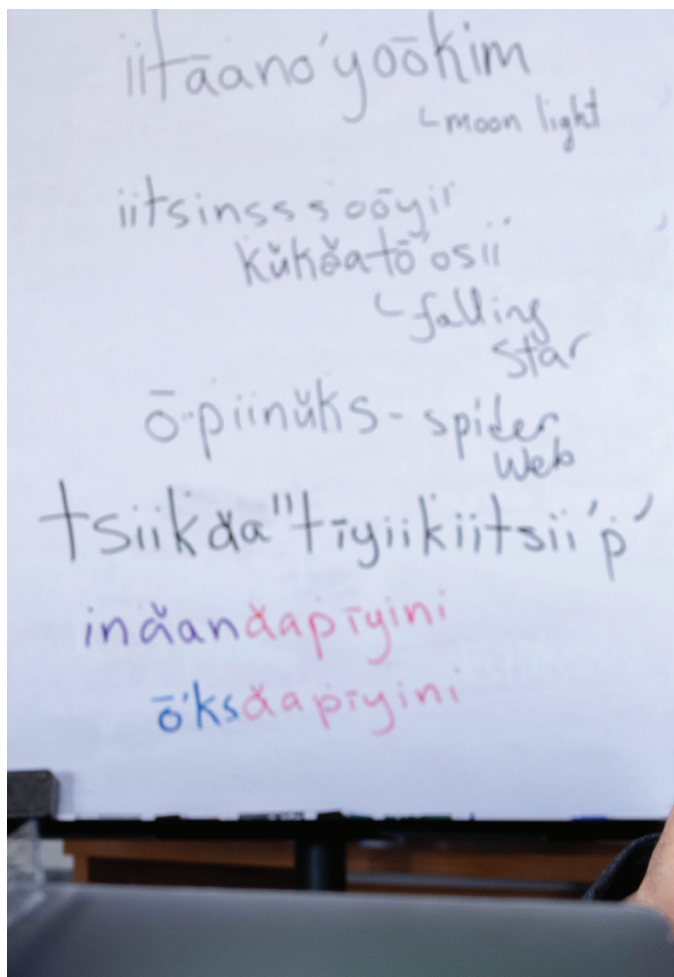 iitāano'yoōkim
└moon light
iitsinsssoōyii
kŭkŏatō'osii
└falling
star
ō-piinŭks- spider
web
tsiikăa"tīyiikiitsii'p'
inăanăapīyini
ō'ksăapīyini